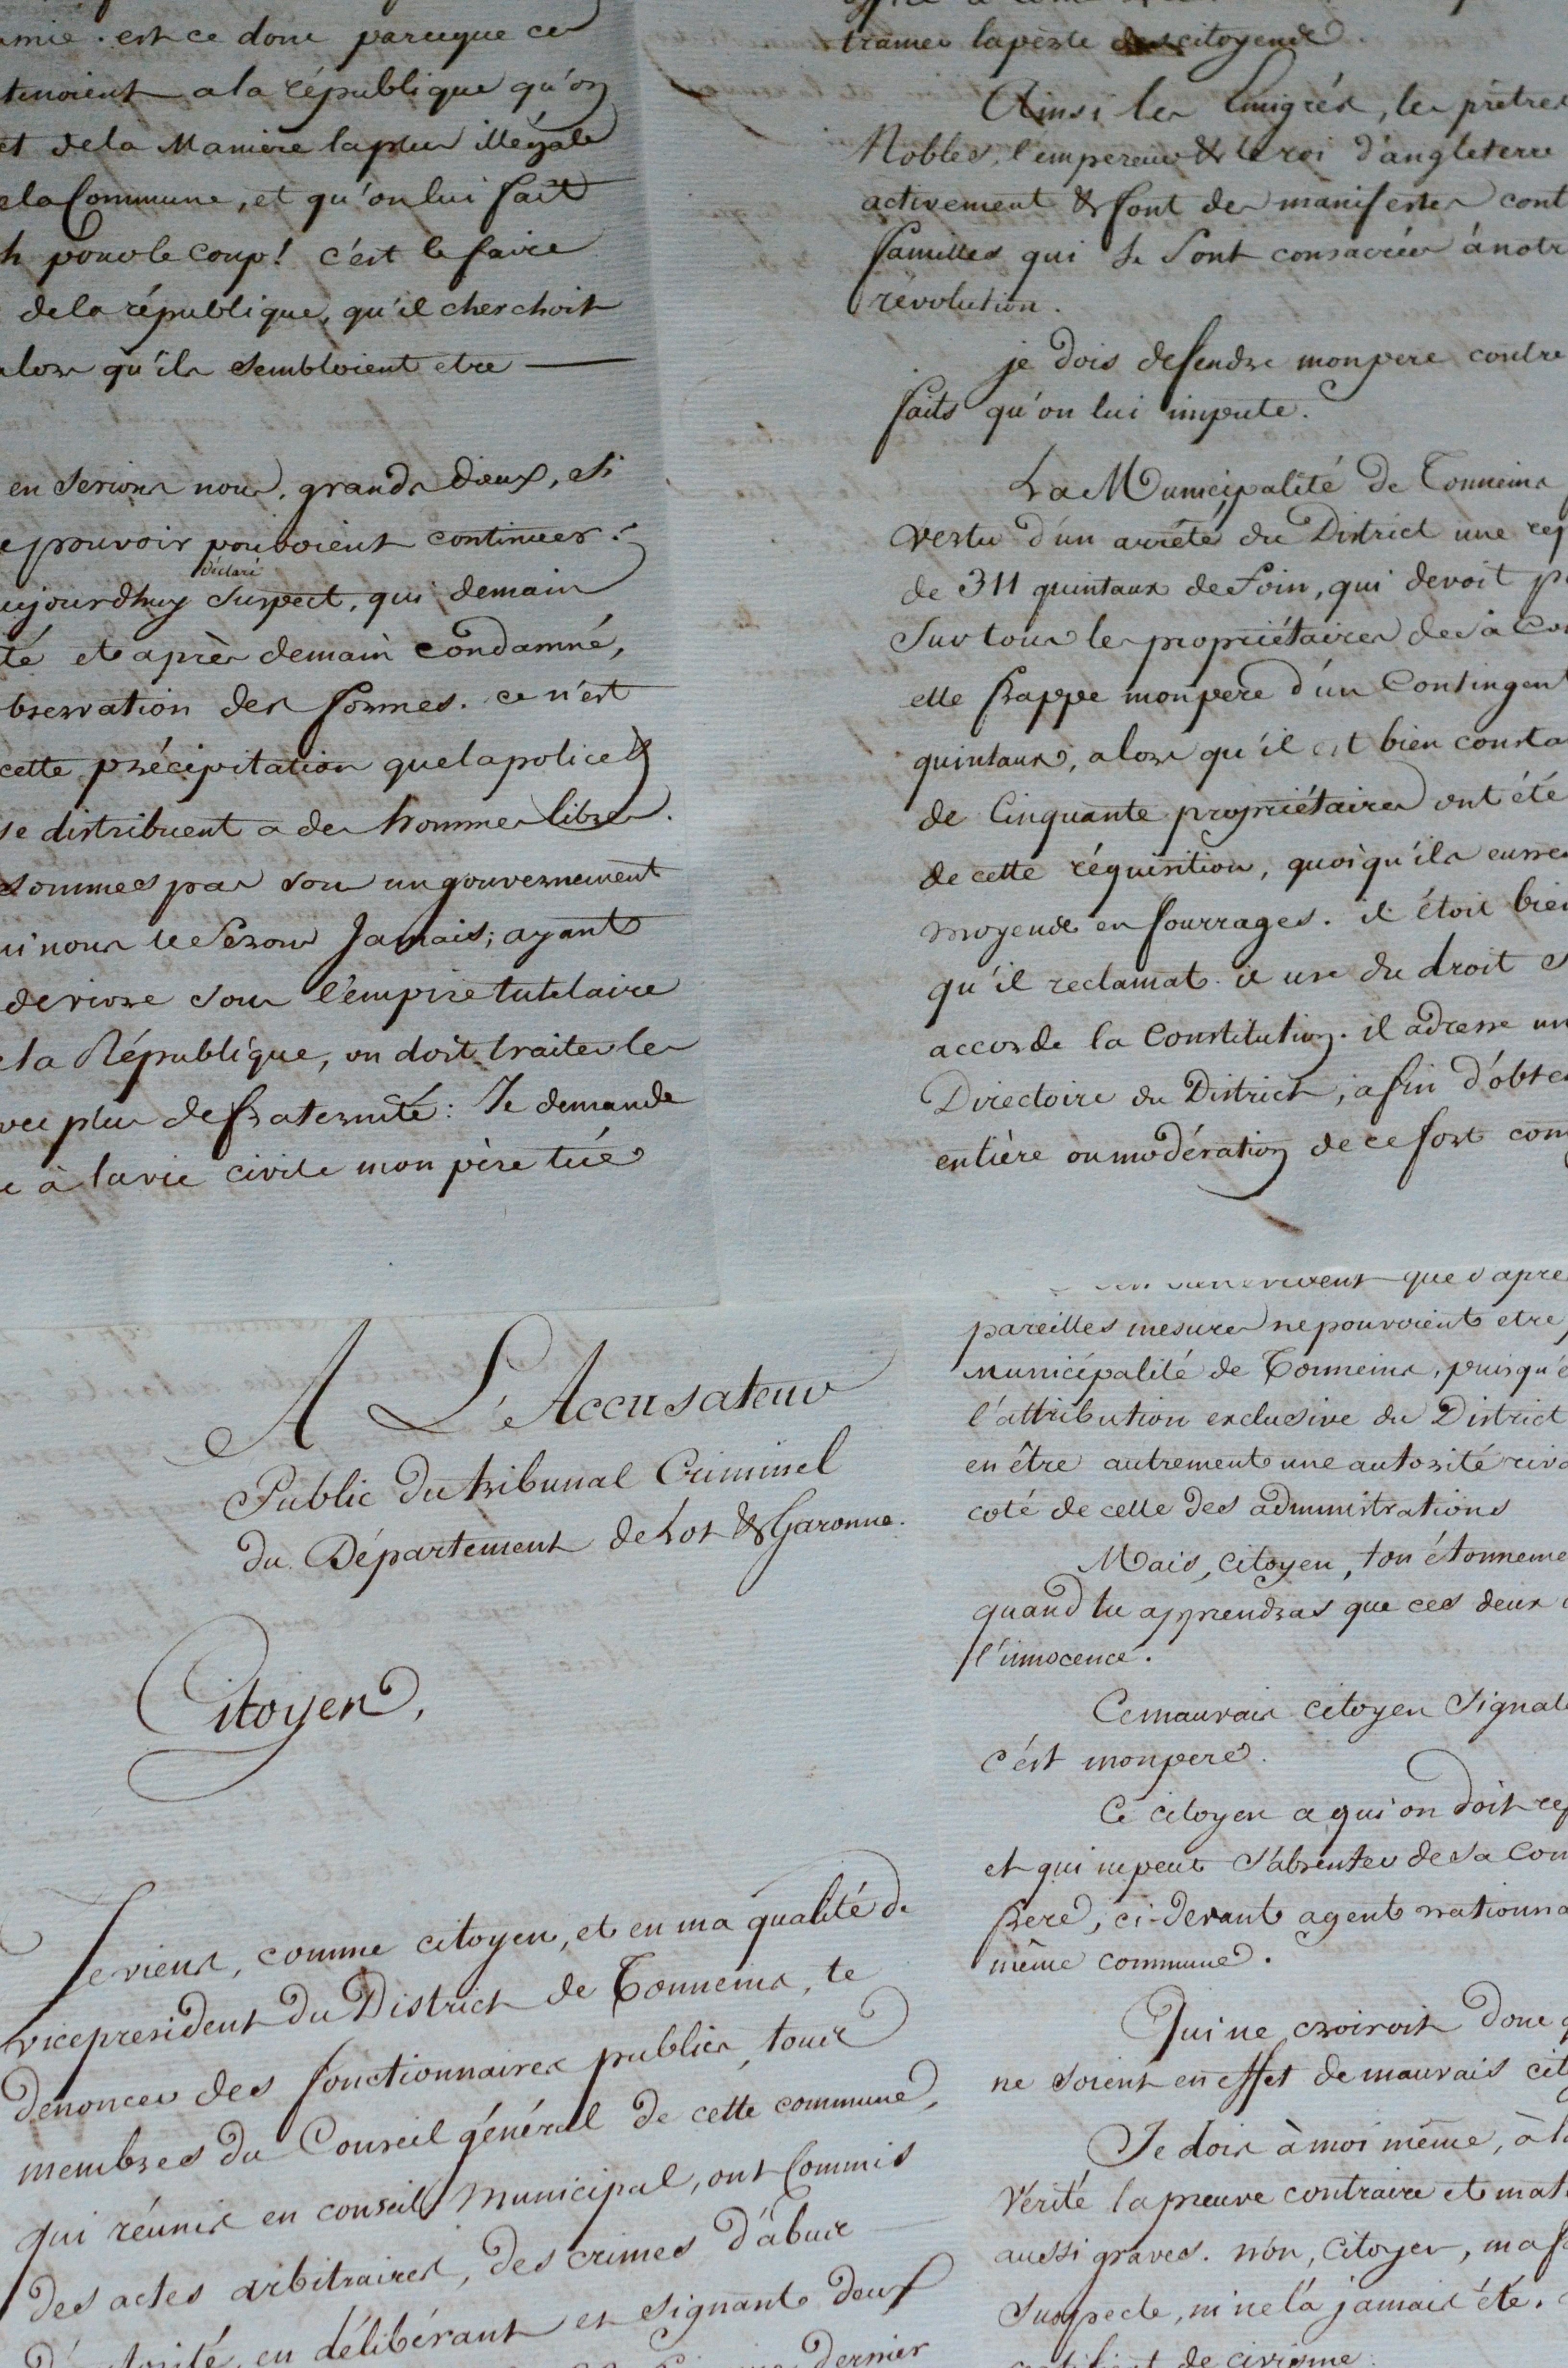 est ce donc parceque ces
tenoient a la république qu'on
et de la Maniere la plus illégale
de la Commune, et qu'on lui fait
pour le coup! c'est le faire
de la république, qu'il cherchoit
alors qu'ils sembloient etre —
en serions nous, grands dieux, si
pouvoir pouvoient continuer.
déclaré
aujourdhuy suspect, qui demain
té et après demain condamné,
observation des formes. ce n'est
cette précipitation que la police &
se distribuent a des hommes libres.
sommes pas sous un gouvernement
ni nous le serons Jamais; ayant
de vivre sous l'empire tutelaire
de la République, on doit traiter les
avec plus de fraternité: Je demande
à la vie civile mon père tué
tramer la perte des citoyens.
Ainsi les Emigrés, les prêtres
Nobles, l'empereur & le roi d'angleterre
activement & font des manifestes cont
familles qui se sont consacrées à notr
révolution.
je dois defendre mon pere contre
faits qu'on lui impute.
La Municipalité de Tonneins
vertu d'un arrêté du District une req
de 311 quintaux de foin, qui devoit p
sur tous les propriétaires de sa Co
elle frappe mon pere d'un Contingent
quintaux, alors qu'il est bien consta
de Cinquante propriétaires ont été
de cette réquisition, quoiqu'ils eusse
moyens en fourrages. il étoit bie
qu'il reclamat. il use du droit
accorde la Constitution. il adresse un
Directoire du District, afin d'obte
entière ou modération de ce fort con
A L'Accusateur
Public du tribunal Criminel
du Département de Lot & Garonne.
Citoyen,
Je viens, comme citoyen, et en ma qualité de
vice president du District de Tonneins, te
dénoncer des fonctionnaires publics, tous
membres du Conseil général de cette commune,
qui réunis en conseil Municipal, ont Commis
des actes arbitraires, des crimes d'abus
en délibérant et signant deux
dernier
que d'apre
pareilles mesures ne pouvoient etre
municipalité de Tonneins, puisqu'e
l'attribution exclusive du District
en être autrement une autorité riva
coté de celle des administrations
Mais, citoyen, ton étonneme
quand tu apprendras que ces deux
l'innocence.
Ce mauvais citoyen signal
c'est mon pere.
Ce citoyen a qui on doit re
et qui ne peut s'absenter de sa Com
frere, ci-devant agent nationna
même commune.
Qui ne croiroit donc q
ne soient en effet de mauvais cit
Je dois à moi même, à la
vérité la preuve contraire et mat
aussi graves. non, citoyen, ma f
suspecte, ni ne l'a jamais été.
certificat de civisme